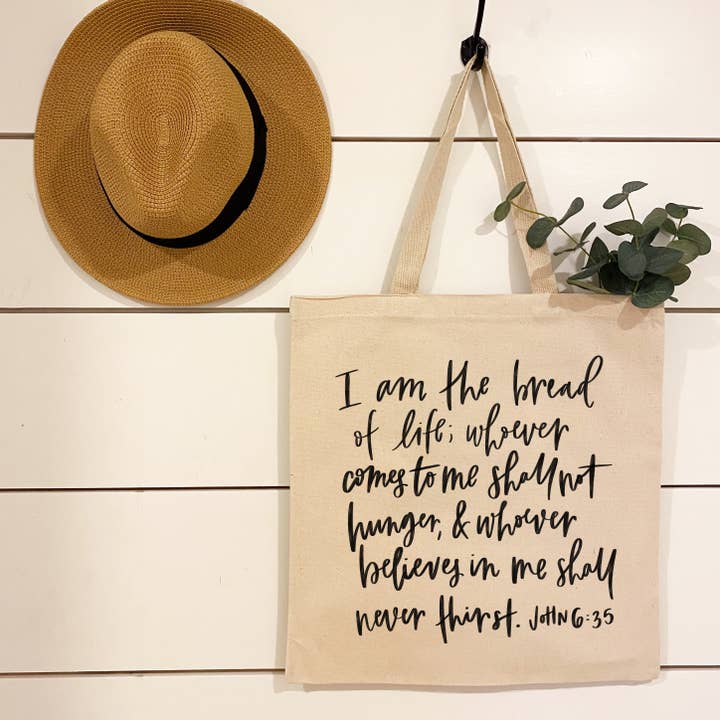 I am the bread
of life; whoever
comes to me shall not
hunger, & whoever
believes in me shall
never thirst. JOHN 6:35